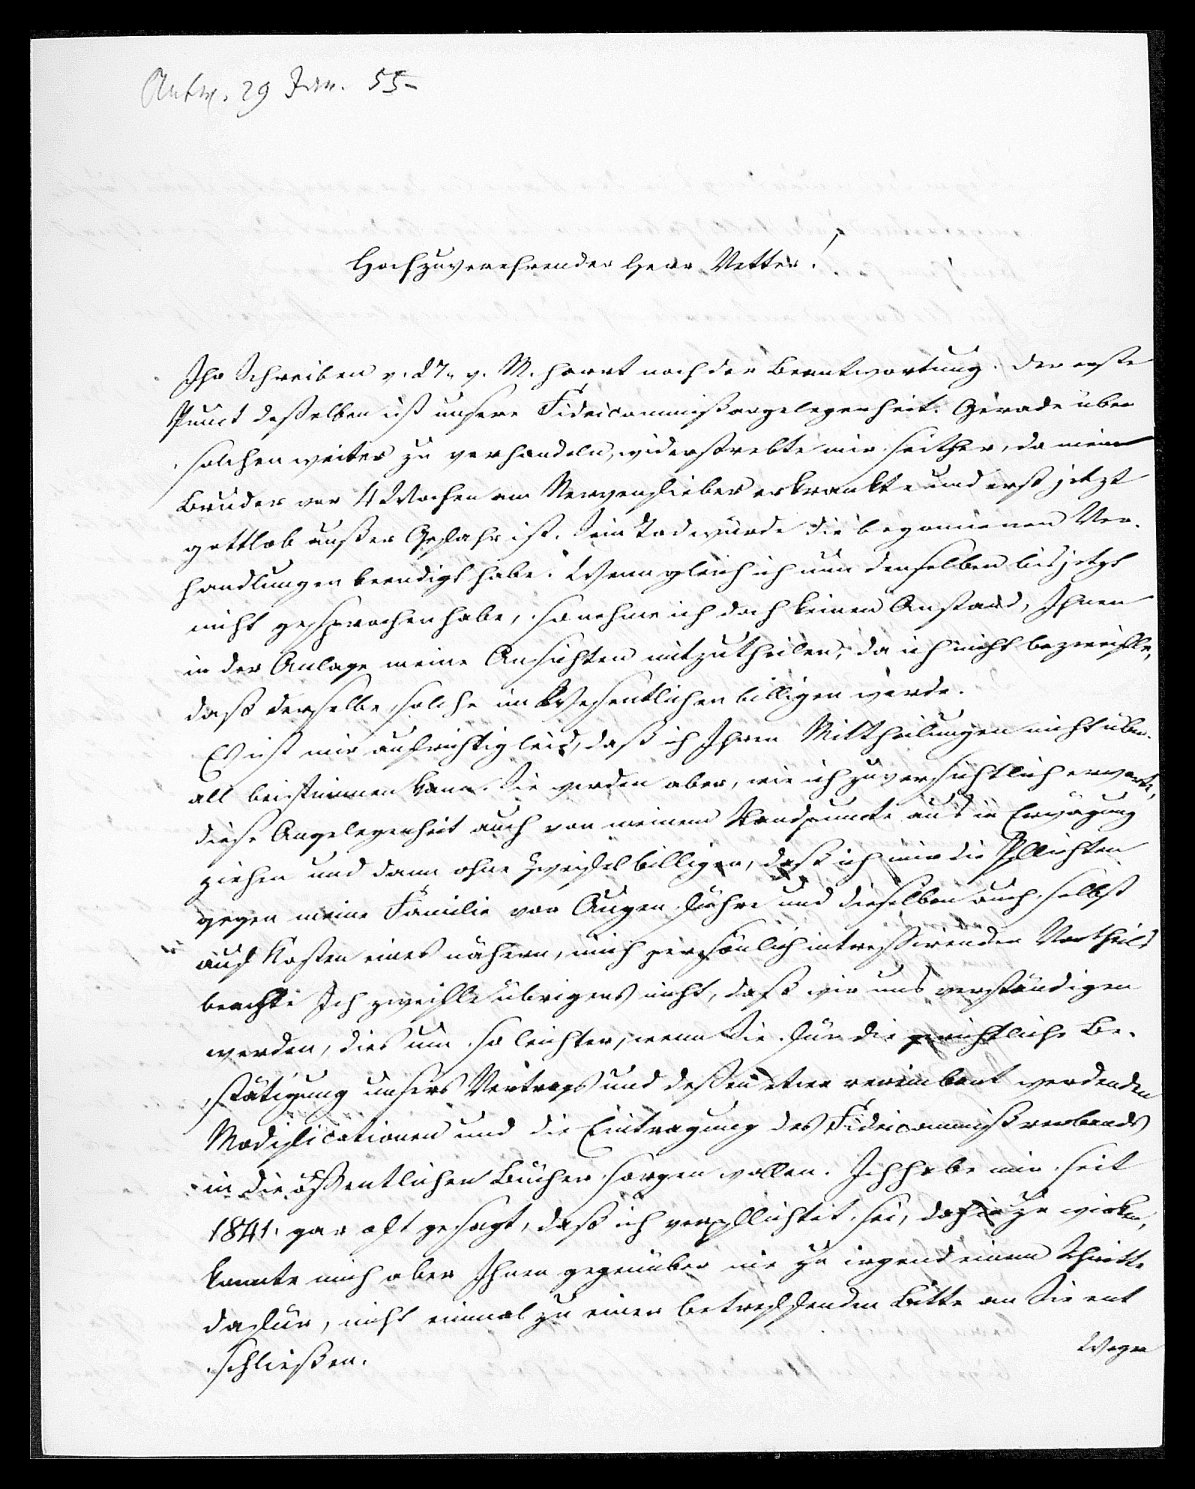 Antw. 29 Jan. 55–
Hochzuverehrender Herr Vetter!
Ihr Schreiben v. 27. v. M. harrt noch der Beantwortung. Der erste
Punct deßelben ist unsere Fideicommißangelegenheit. Gerade über
solchen weiter zu verhandeln, widerstrebte mir seither, da mein
Bruder vor 4 Wochen am Nervenfieber erkrankte und erst jetzt
gottlob außer Gefahr ist. Sein Tod würde die begonnenen Ver-
handlungen beendigt habe. Wenn gleich ich nun denselben bis jetzt
nicht gesprochen habe, so nehme ich doch keinen Anstand, Ihnen
in der Anlage meine Ansichten mitzutheilen, da ich nicht bezweifle,
daß derselbe solche im Wesentlichen billigen werde.
Es ist mir aufrichtig leid, daß ich Ihren Mittheilungen nicht über-
all beistimmen kann. Sie werden aber, wie ich zuversichtlich erwarte,
diese Angelegenheit auch von meinem Standpuncte aus in Erwägung
ziehen und dann ohne Zweifel billigen, daß ich mir die Pflichten
gegen meine Familie vor Augen führe und dieselben auch selbst
auf Kosten eines nähern, mich persönlich intressirenden Vortheils
beachte. Ich zweifle übrigens nicht, daß wir uns verständigen
werden, dies um so leichter, wenn Sie für die gerichtliche Be-
stätigung unsers Vertrags und deßen etwa vereinbart werdenden
Modificationen und die Eintragung des Fideicommißverbands
in die öffentlichen Bücher sorgen wollen. Ich habe mir seit
1841. gar oft gesagt, daß ich verpflichtet sei, dahin zu wirken,
konnte mich aber Ihnen gegenüber nie zu irgend einem Schritte
dafür, nicht einmal zu einer betreffenden Bitte an Sie ent
schließen.
Wegen